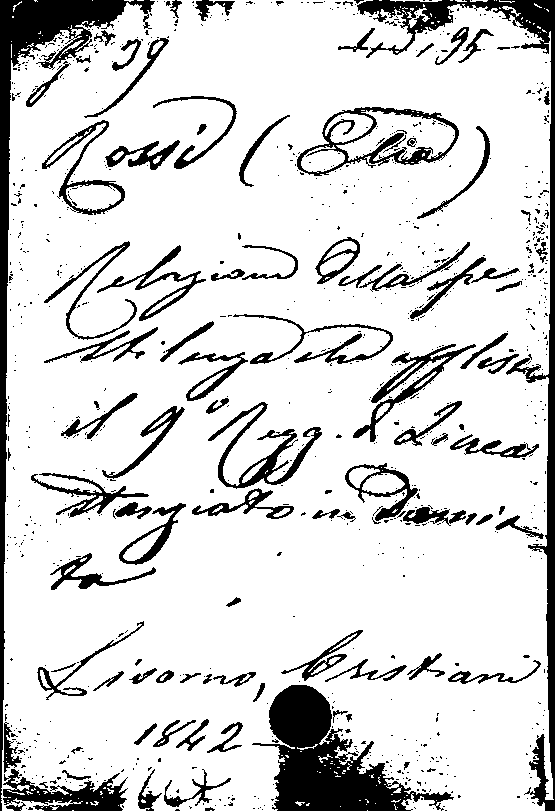 G. 39
Rossi (Elia)
Relazione della pe-
stilenza che afflisse
il 9º Regg. di Linea
stanziato in Damia
ta
Livorno, Cristiani
1842